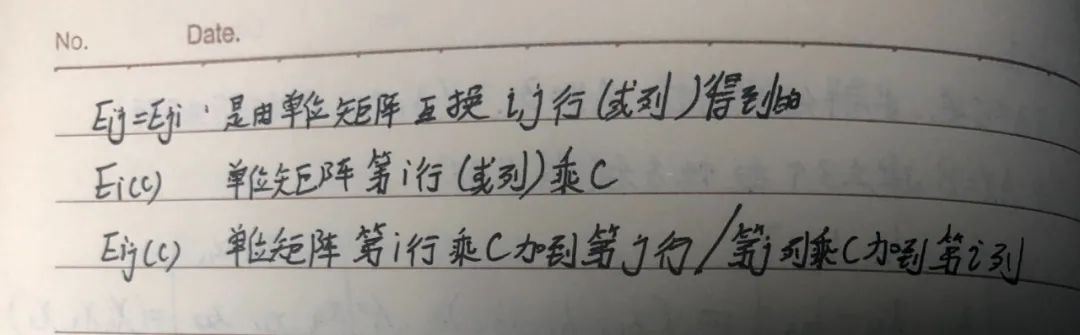 No. Date.
Eij=Eji 是由单位矩阵互换 i,j 行(或列)得到的
Ei(c) 单位矩阵第i行(或列)乘C
Eij(c) 单位矩阵第i行乘C加到第j行/第j列乘C加到第i列